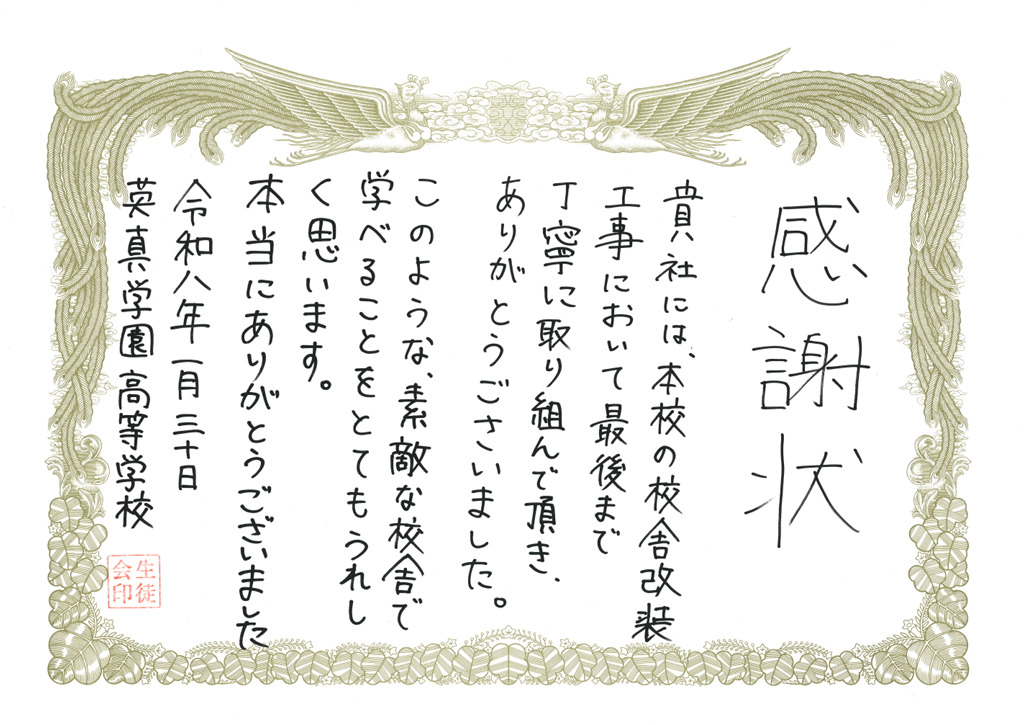 感謝状
貴社には、本校の校舎改装
工事において最後まで
丁寧に取り組んで頂き、
ありがとうございました。
このような、素敵な校舎で
学べることをとてもうれし
く思います。
本当にありがとうございました
令和八年一月三十日
英真学園高等学校
生徒
会印